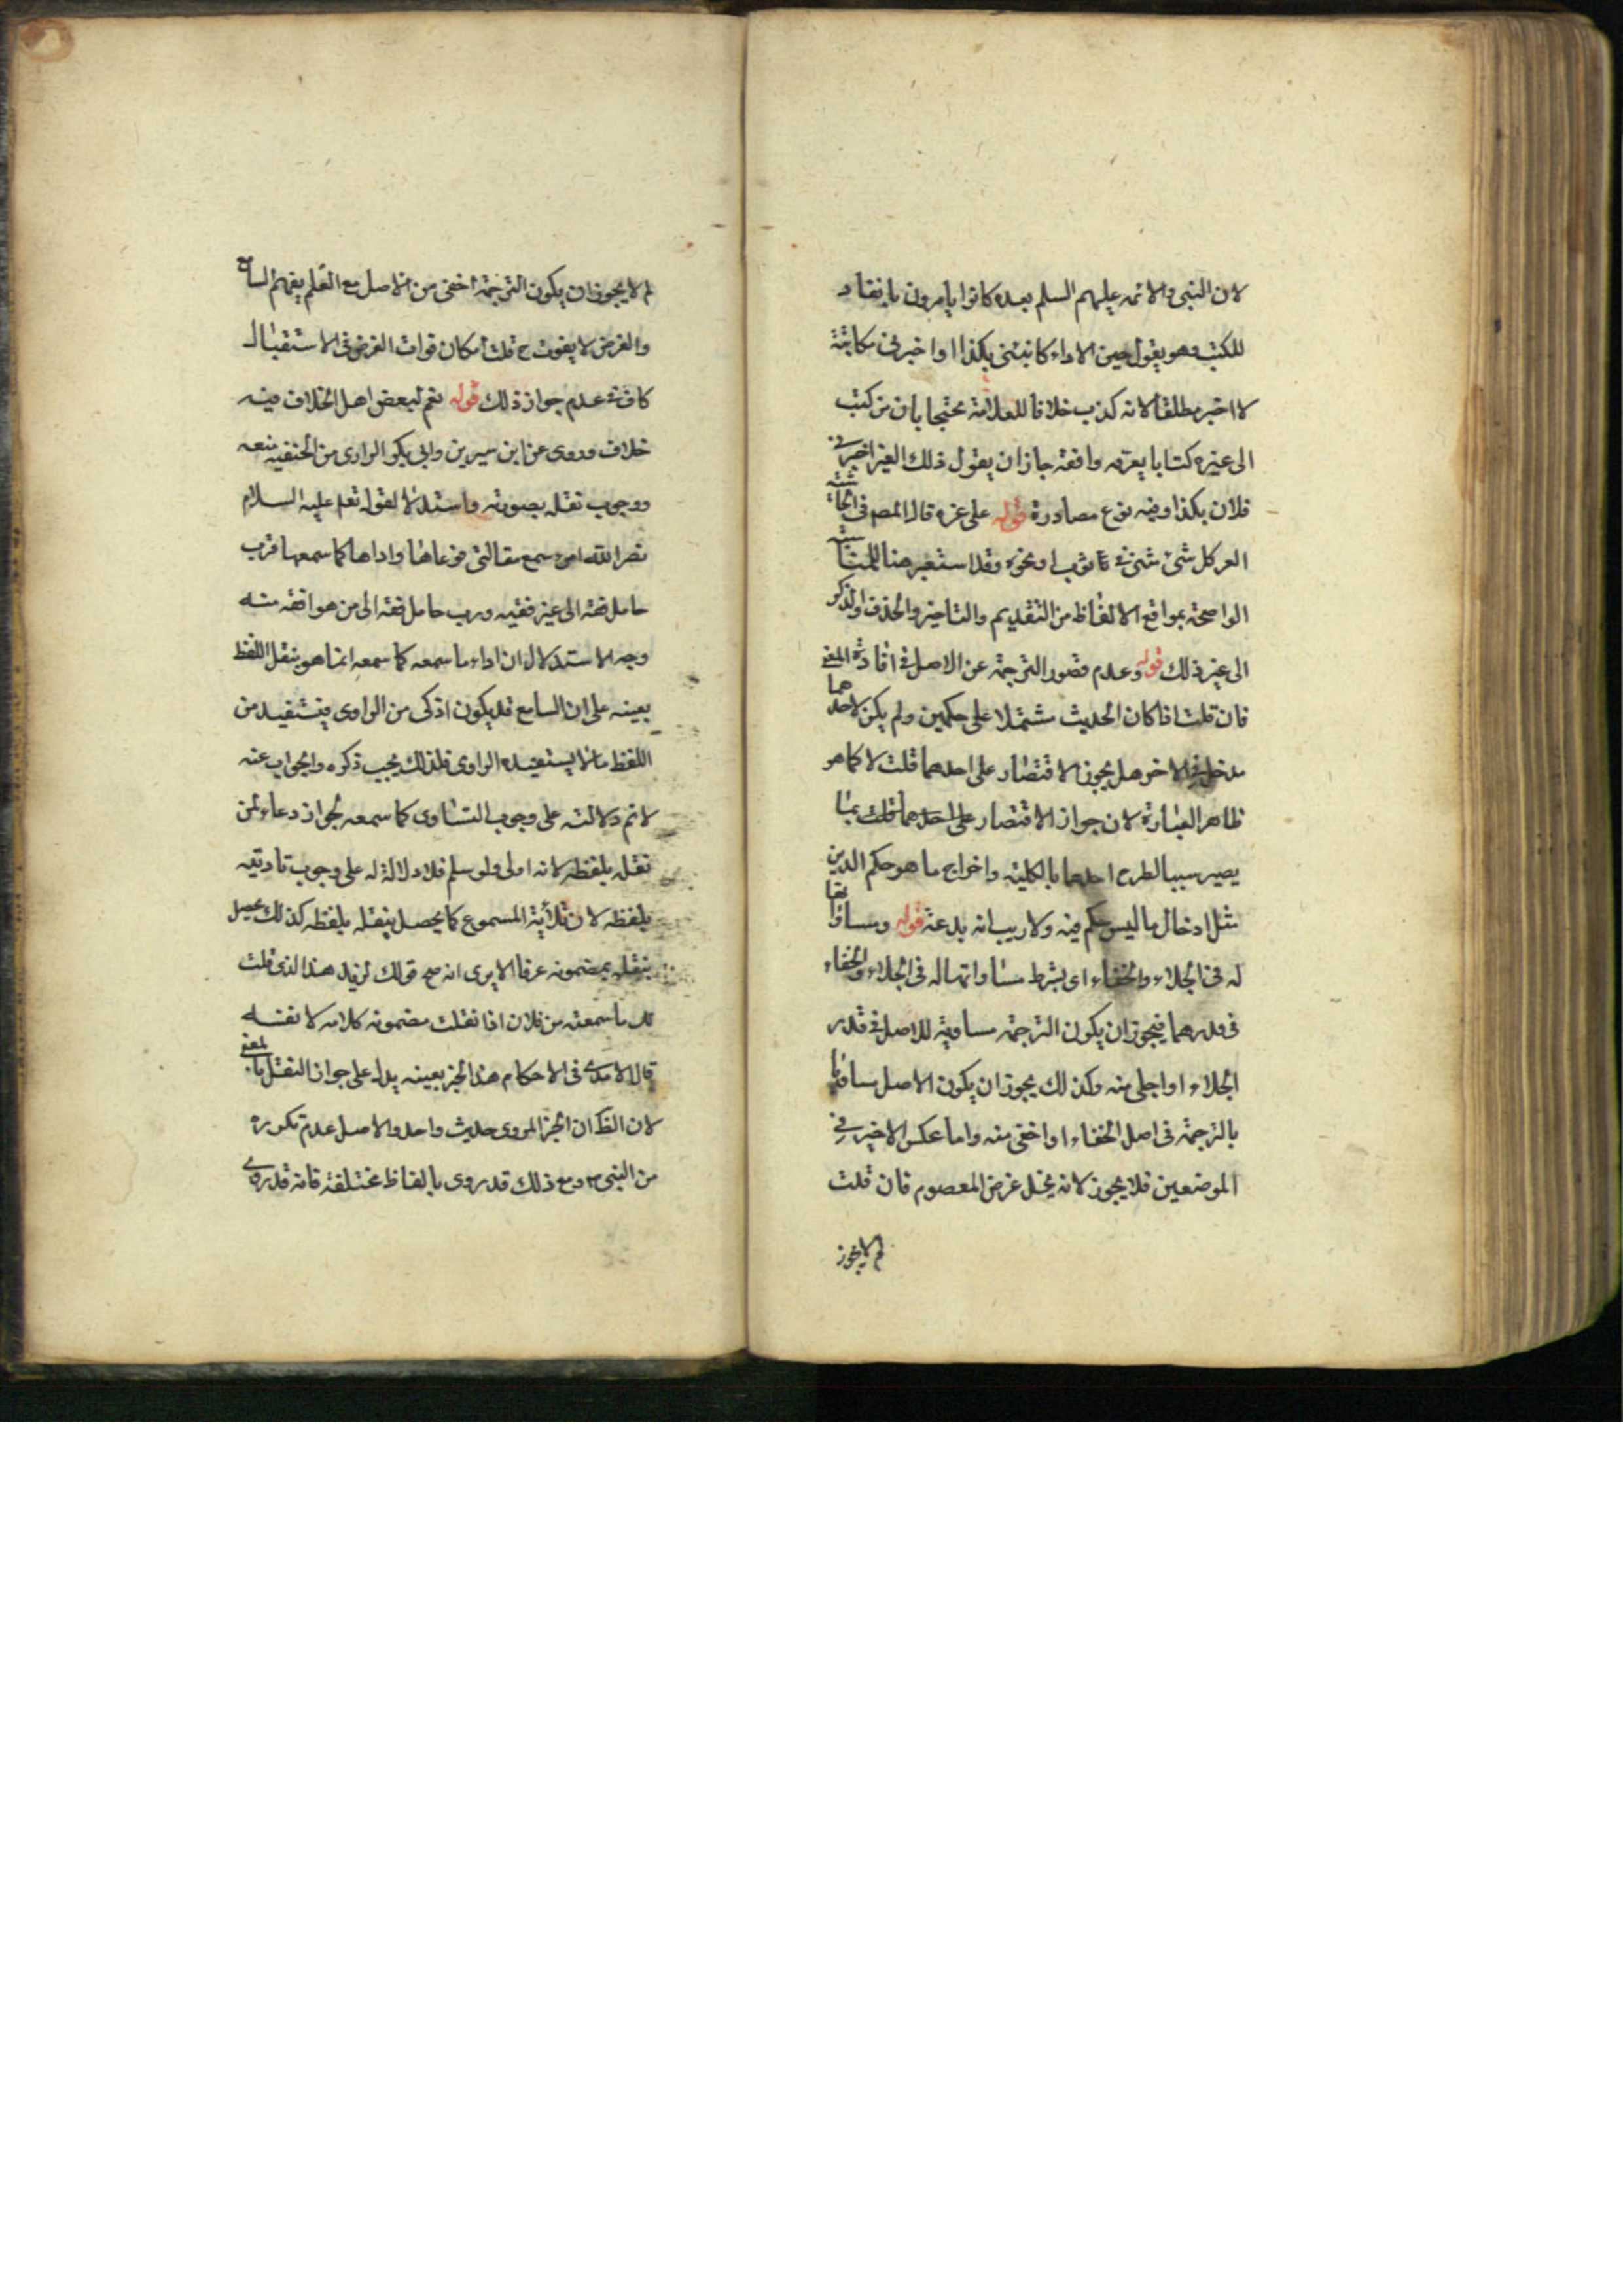 لان النبى والائمه عليهم السلم بعده كانوا يامرون بانفاد
للكتب وهو يقول حين الاداء كاتبنى بكذا او اخبرنى مكاتبة
لا اخبر مطلقا لانه كذب خلافا للعلامة محتجا بان من كتب
الى غيره كتابا يعرفه واقعة جاز ان يقول ذلك الغير اخبرنى
فلان بكذا وفيه نوع مصادرة قوله على غره قال المص فى الحاشية
الغر كل شئ شئ فى ثوب او نحوه وقد استعير هنا
الواضحة بمواقع الالفاظ من التقديم والتاخير والحذف والذكر
الى غير ذلك قوله وعدم قصور الترجمة عن الاصل فى افادة المعنى
فان قلت اذا كان الحديث مشتملا على حكمين ولم يكن لاحدهما
مدخل فى الاخر هل يجوز الاقتصار على احدهما قلت لا كما هو
ظاهر العبارة لان جواز الاقتصار على احدهما
يصير سببا لطرح احدهما بالكلية واخراج ما هو حكم الدين
مثل ادخال ما ليس حكم فيه ولا ريب انه بدعة قوله ومساوا
له فى الجلاء والخفاء اى بشرط مساواتها له فى الجلاء والخفاء
فى قدرهما فيجوز ان يكون الترجمة مساوية للاصل فى قدر
الجلاء او اجلى منه وكذلك يجوز ان يكون الاصل مساويا
بالترجمة فى اصل الخفاء او اخفى منه واما عكس الاخير فى
الموضعين فلا يجوز لانه يخل غرض المعصوم فان قلت
لم لا يجوز
لم لا يجوز ان يكون الترجمة اخفى من الاصل مع العلم بفهم السامع
والغرض لا يفوت ح قلت امكان فوات الغرض فى الاستقبال
كاف فى عدم جواز ذلك قوله نعم لبعض اهل الخلاف فيه
خلاف وروى عن ابن سيرين وابى بكر الرازى من الحنفية منعه
ووجوب نقله بصورته واستدلا لقوله عليه السلام
نضر الله امرء سمع مقالتى فوعاها واداها كما سمعها فرب
حامل فقه الى غير فقيه ورب حامل فقه الى من هو افقه منه
وجه الاستدلال ان اداء ما سمعه كما سمعه انما هو بنقل اللفظ
بعينه على ان السامع قد يكون اذكى من الراوى فيستفيد من
اللفظ ما لا يستفيده الراوى فلذلك يجب ذكره والجواب عنه
لا نم دلالته على وجوب التساوى كما سمعه لجواز دعاء لمن
نقله بلفظه لانه اولى ولو سلم فلا دلالة له على وجوب تاديته
بلفظه لان تأدية المسموع كما يحصل بنقله بلفظه كذلك يحصل
بنقله بمضمونه عرفا الا يرى انه صح قولك لزيد هذا الذى قلت
لك ما سمعته من فلان اذا نقلت مضمون كلامه لا نفسه
قال الامدى فى الاحكام هذا الخبر بعينه يدل على جواز النقل بالمعنى
لان الظ ان الخبر المروى حديث واحد والاصل عدم تكرره
من النبى ص ومع ذلك قد روى بالفاظ مختلفة فانه قد روى